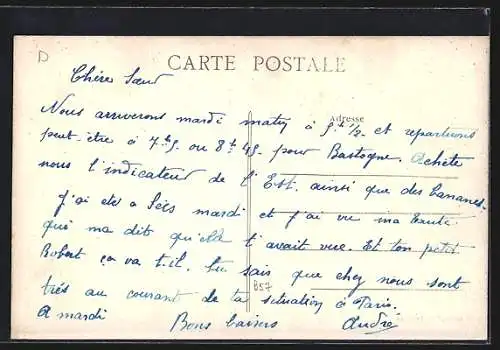 D
CARTE POSTALE
Chère Sœur
Adresse
Nous arriverons mardi matin à 5h 1/2. et repartirons
peut-être à 7h5. ou 8h45. pour Bastogne. Achète
nous l'indicateur de l'Est. ainsi que des bananes.
J'ai été à mardi et j'ai vu ma tante
qui ma dit qu'elle t'avait vue. Et ton petit
Robert ça va t.il. Tu sais que chez nous sont
très au courant de ta situation à Paris.
A mardi Bons baisers André
B57